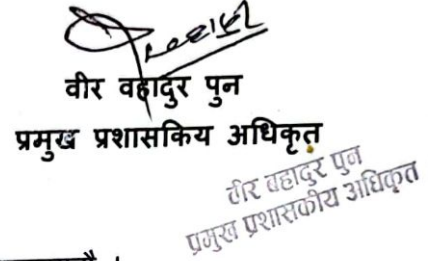 वीर वहादुर पुन
प्रमुख प्रशासकिय अधिकृत
वीर बहादुर पुन
प्रमुख प्रशासकीय अधिकृत